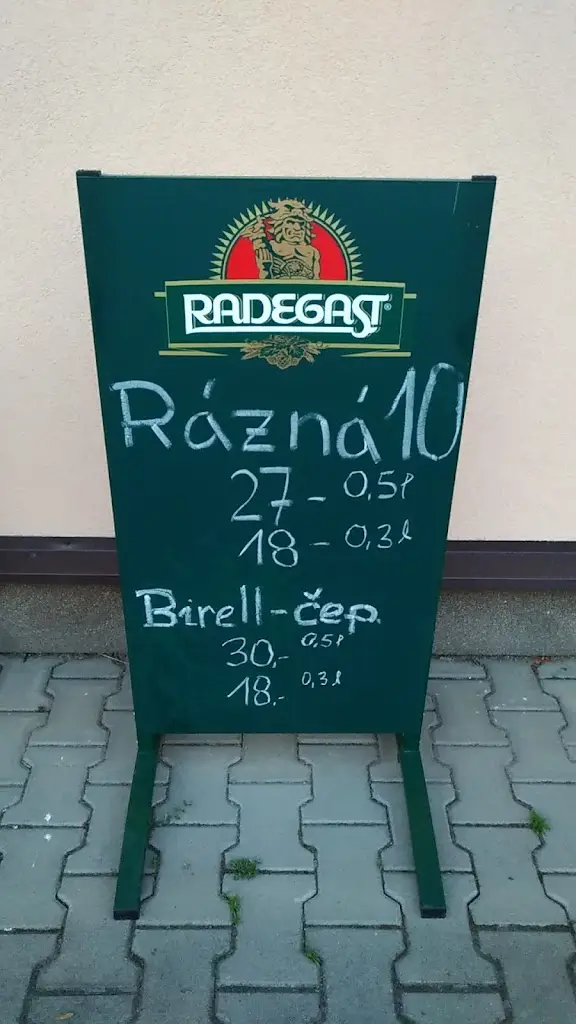 RADEGAST®
Rázná 10
27 - 0,5l
18 - 0,3l
Birell - čep.
30,- 0,5l
18,- 0,3l